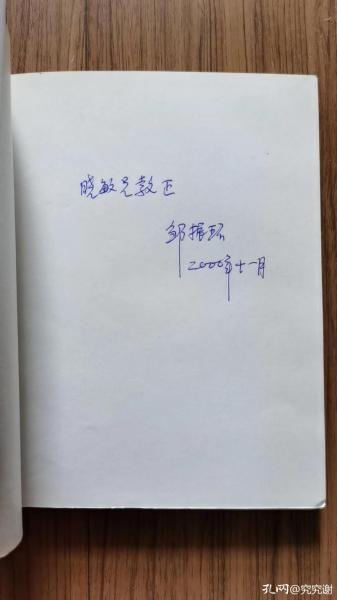 晓敏兄教正
邹振环
2000年十一月
孔网@究究谢